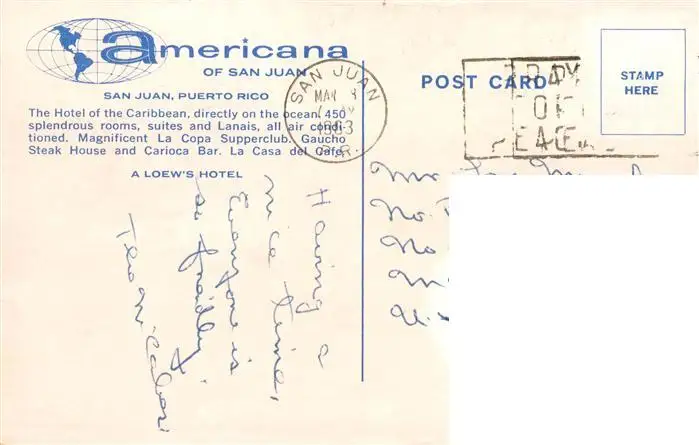 americana
OF SAN JUAN
SAN JUAN, PUERTO RICO
The Hotel of the Caribbean, directly on the ocean. 450
splendrous rooms, suites and Lanais, all air condi-
tioned. Magnificent La Copa Supperclub. Gaucho
Steak House and Carioca Bar. La Casa del Cafe.
A LOEW'S HOTEL
SAN JUAN
1963
P.R.
POST CARD
PRAY
FOR
PEACE
STAMP
HERE
Having a
nice time.
Everyone is
so friendly.
Mr
No.
No